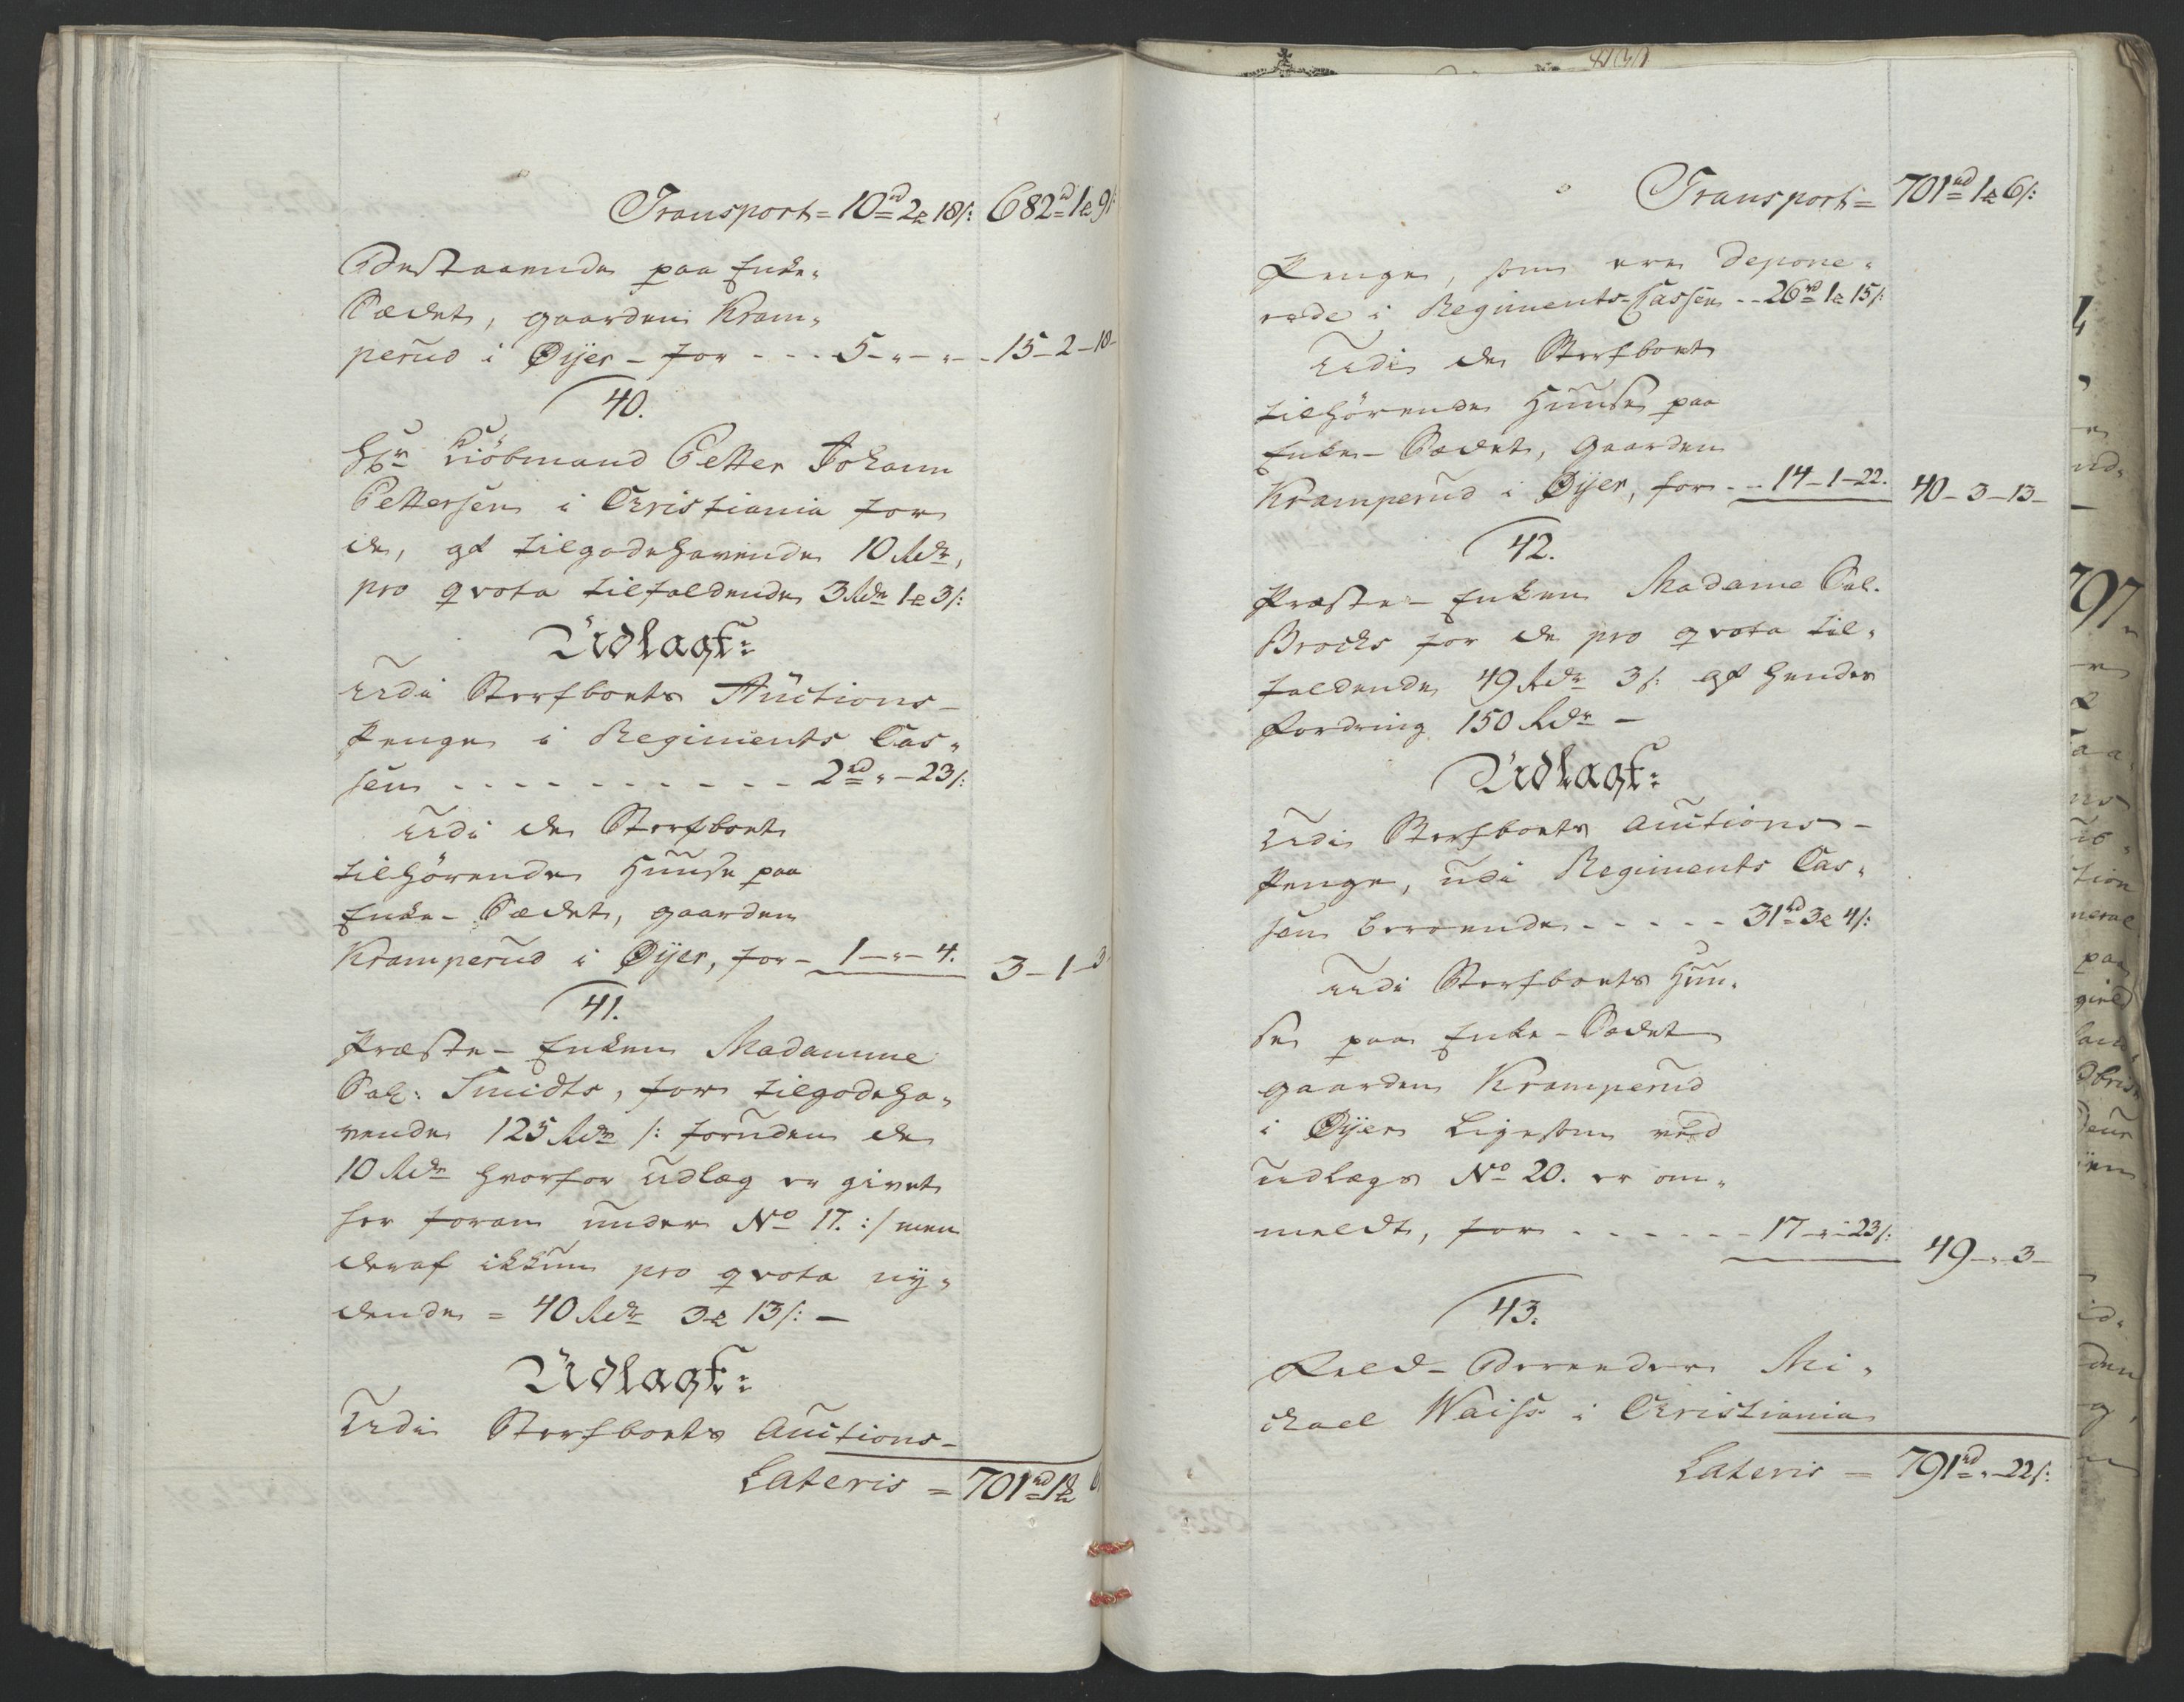 Transport = 10rd 2 18/: 682rd 1 9/:
Bestaaende paa Enke-
Sædet, gaarden Kram-
perud i Øyer - for - - - 5 - " - " - 15 - 2 - 18 -
40.
Hr Kiöbmand Petter Johann
Pettersen i Christiania for
de, af tilgodehavende 10 Rdr,
pro qvota tilfaldende 3 Rdr 1 3/:
Udlagt:
Udi Sterfboets Auctions-
Penge i Regiments Cas-
sen - - - - - - - - - - 2rd " - 23/:
Udi de Sterfboet
tilhörende Huuse paa
Enke-Sædet, gaarden
Kramperud i Øyer, for - 1 - " - 4. 3 - 1 - 3
41.
Præste-Enken Madamme
Sal: Smidts, for tilgodeha-
vende 125 Rdr /: foruden de
10 Rdr hvorfor udlæg er givet
her foran under No 17. :/ men
deraf ikkun pro qvota ny-
dende = 40 Rdr 3 13/: -
Udlagt:
Udi Sterfboets Auctions-
Lateris = 701rd 1 6
Transport = 701rd 1 6/:
Penge, som ere depone-
rede i Regiments-Cassen - - 26rd 1 15/:
Udi de Sterfboet
tilhörende Huuse paa
Enke-Sædet, Gaarden
Kramperud i Øyer, for - - 14 - 1 - 22. 40 - 3 - 13 -
42.
Præste-Enken Madame Sal.
Brocks for de pro qvota til-
faldende 49 Rdr 3/: af hendes
Fordring 150 Rdr -
Udlagt:
Udi Sterfboets Auctions-
Penge, udi Regiments Cas-
sen beroende - - - - - 31rd 3 4/:
Udi Sterfboets Huu-
se paa Enke-Sædet
gaarden Kramperud
i Øyer ligesom ved
udlægs No 20. er om-
meldt, for - - - - - - 17 - " - 23/: 49 - " - 3 -
43.
Feld-Bereeder Mi-
chael Waiss i Christiania
Lateris = 791rd " - 22/: